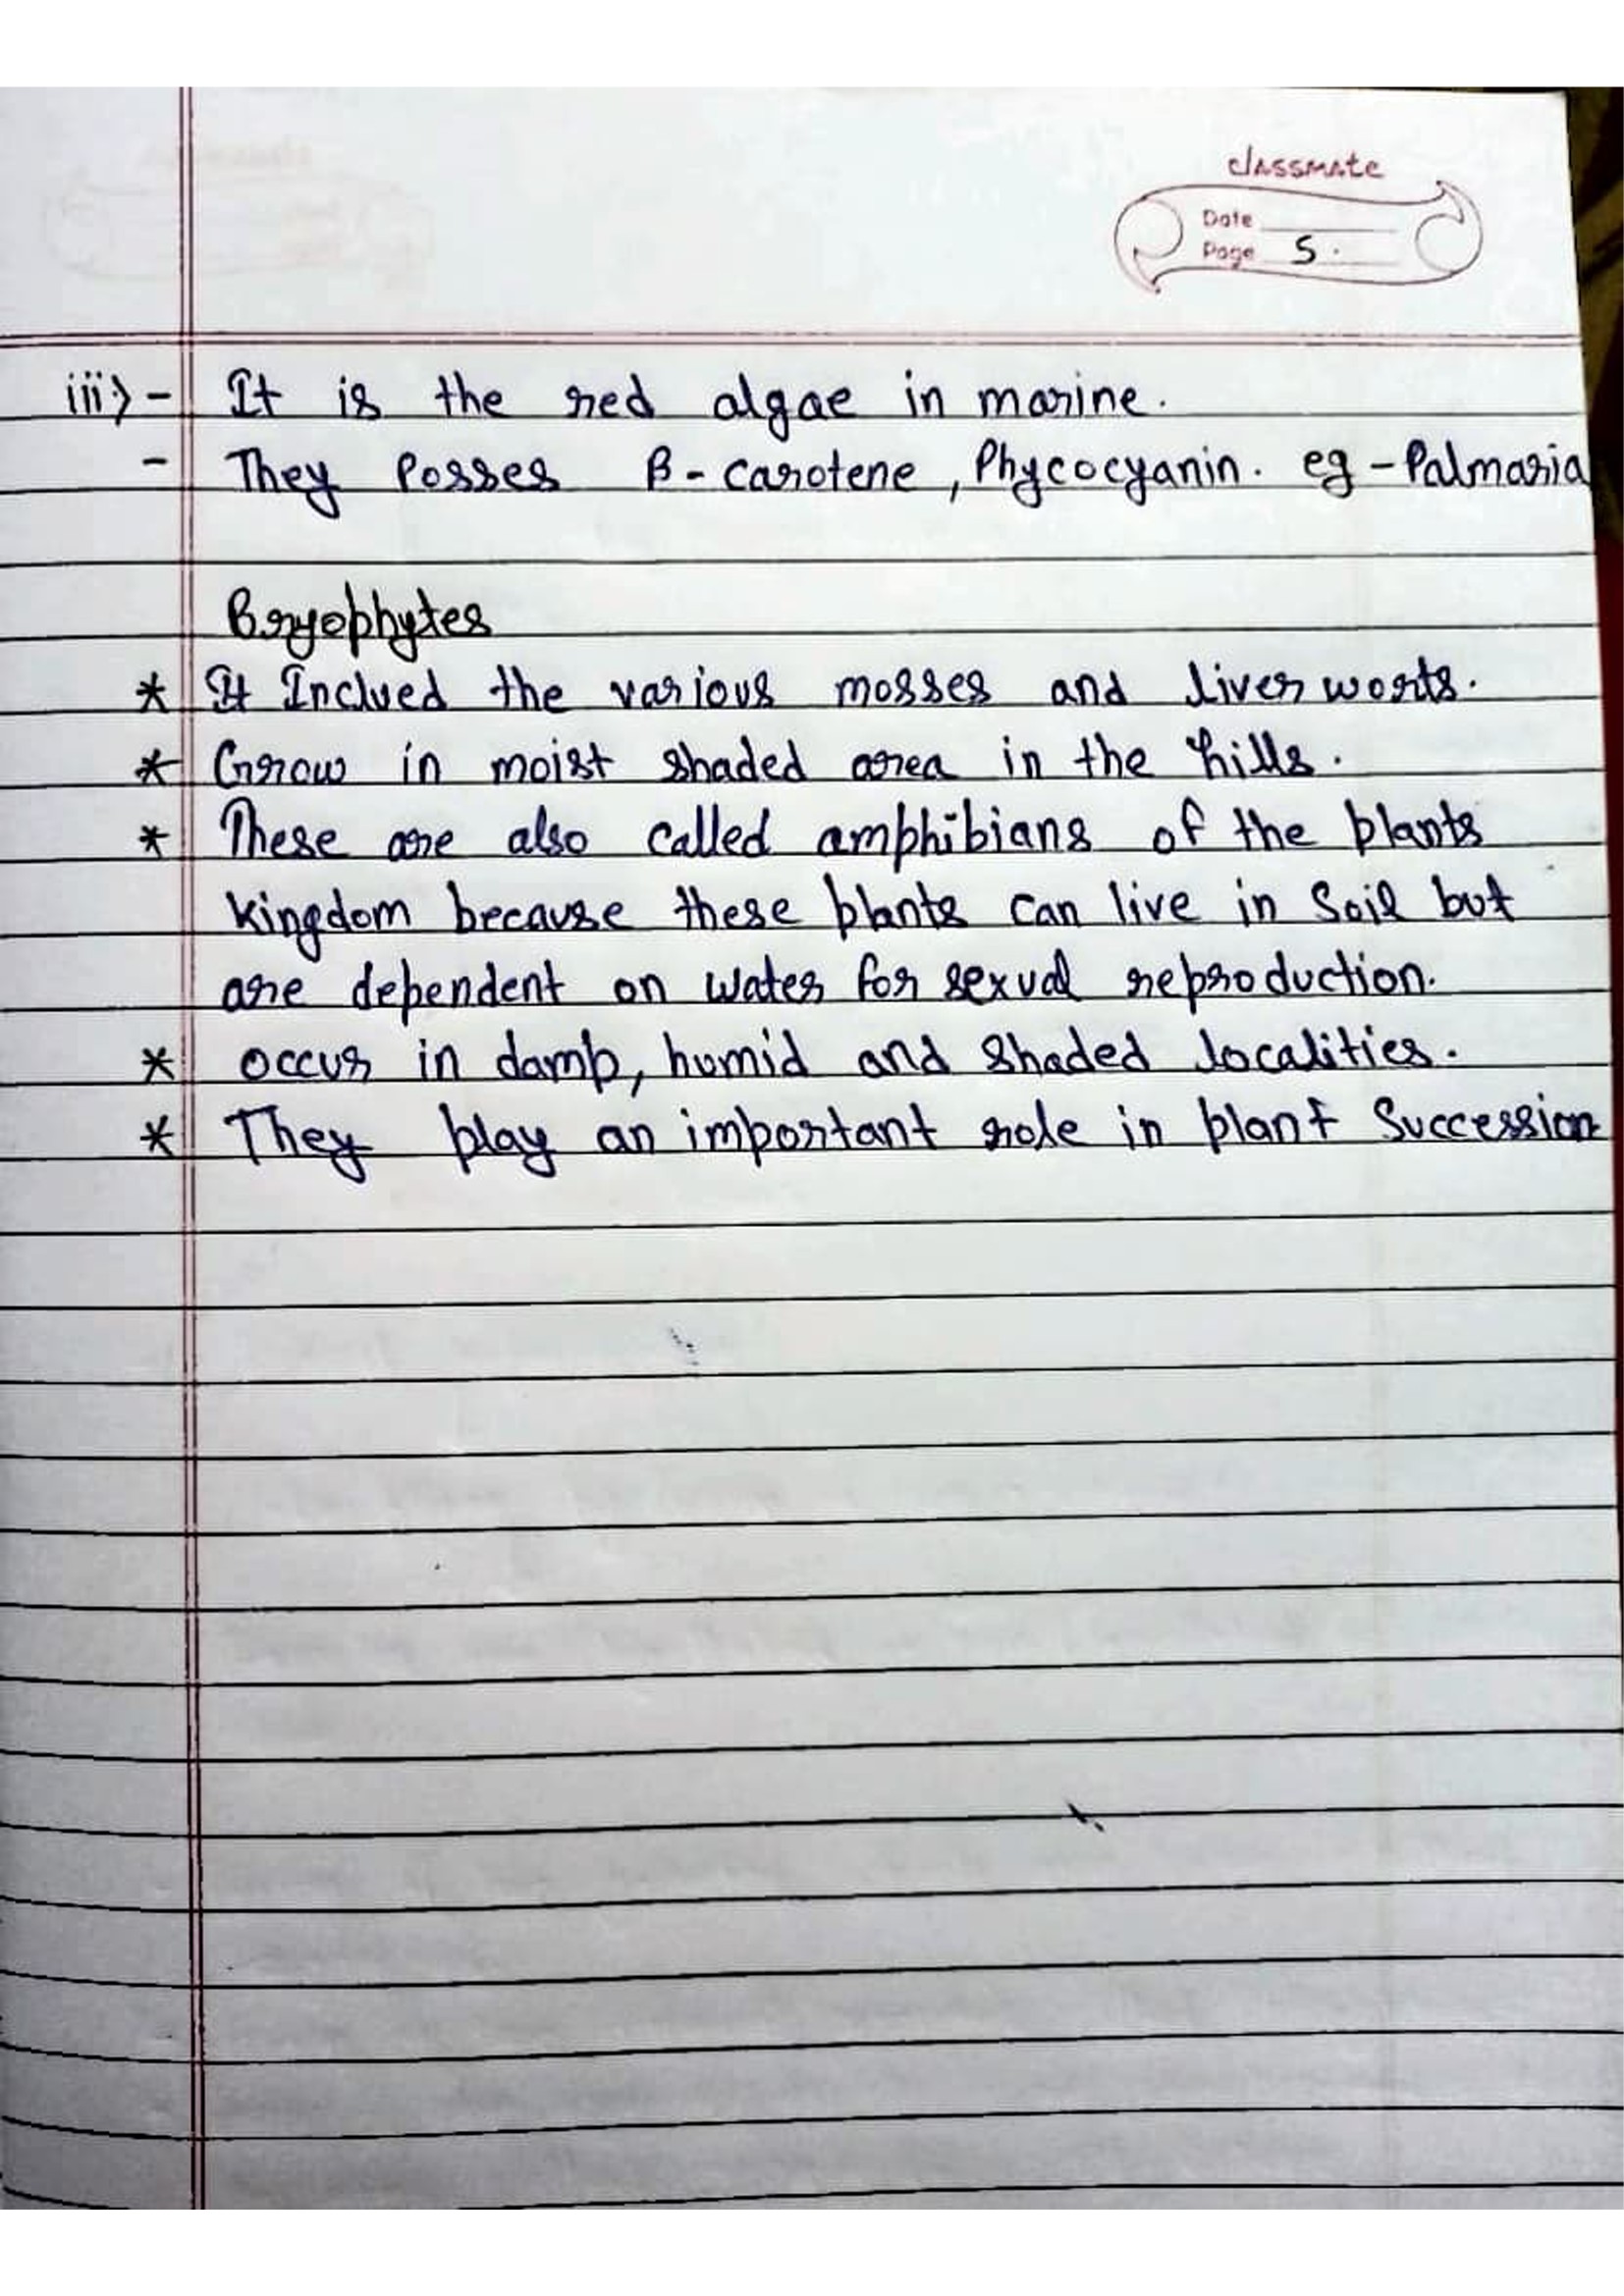 classmate
Date
Page 5.
iii) - It is the red algae in marine.
- They Posses B-carotene, Phycocyanin. eg - Palmaria
Bryophytes
* It Inclued the various mosses and liver worts.
* Grow in moist shaded area in the hills.
* These are also called amphibians of the plants
kingdom because these plants can live in Soil but
are dependent on water for sexual reproduction.
* occur in damp, humid and shaded localities.
* They play an important role in plant Succession